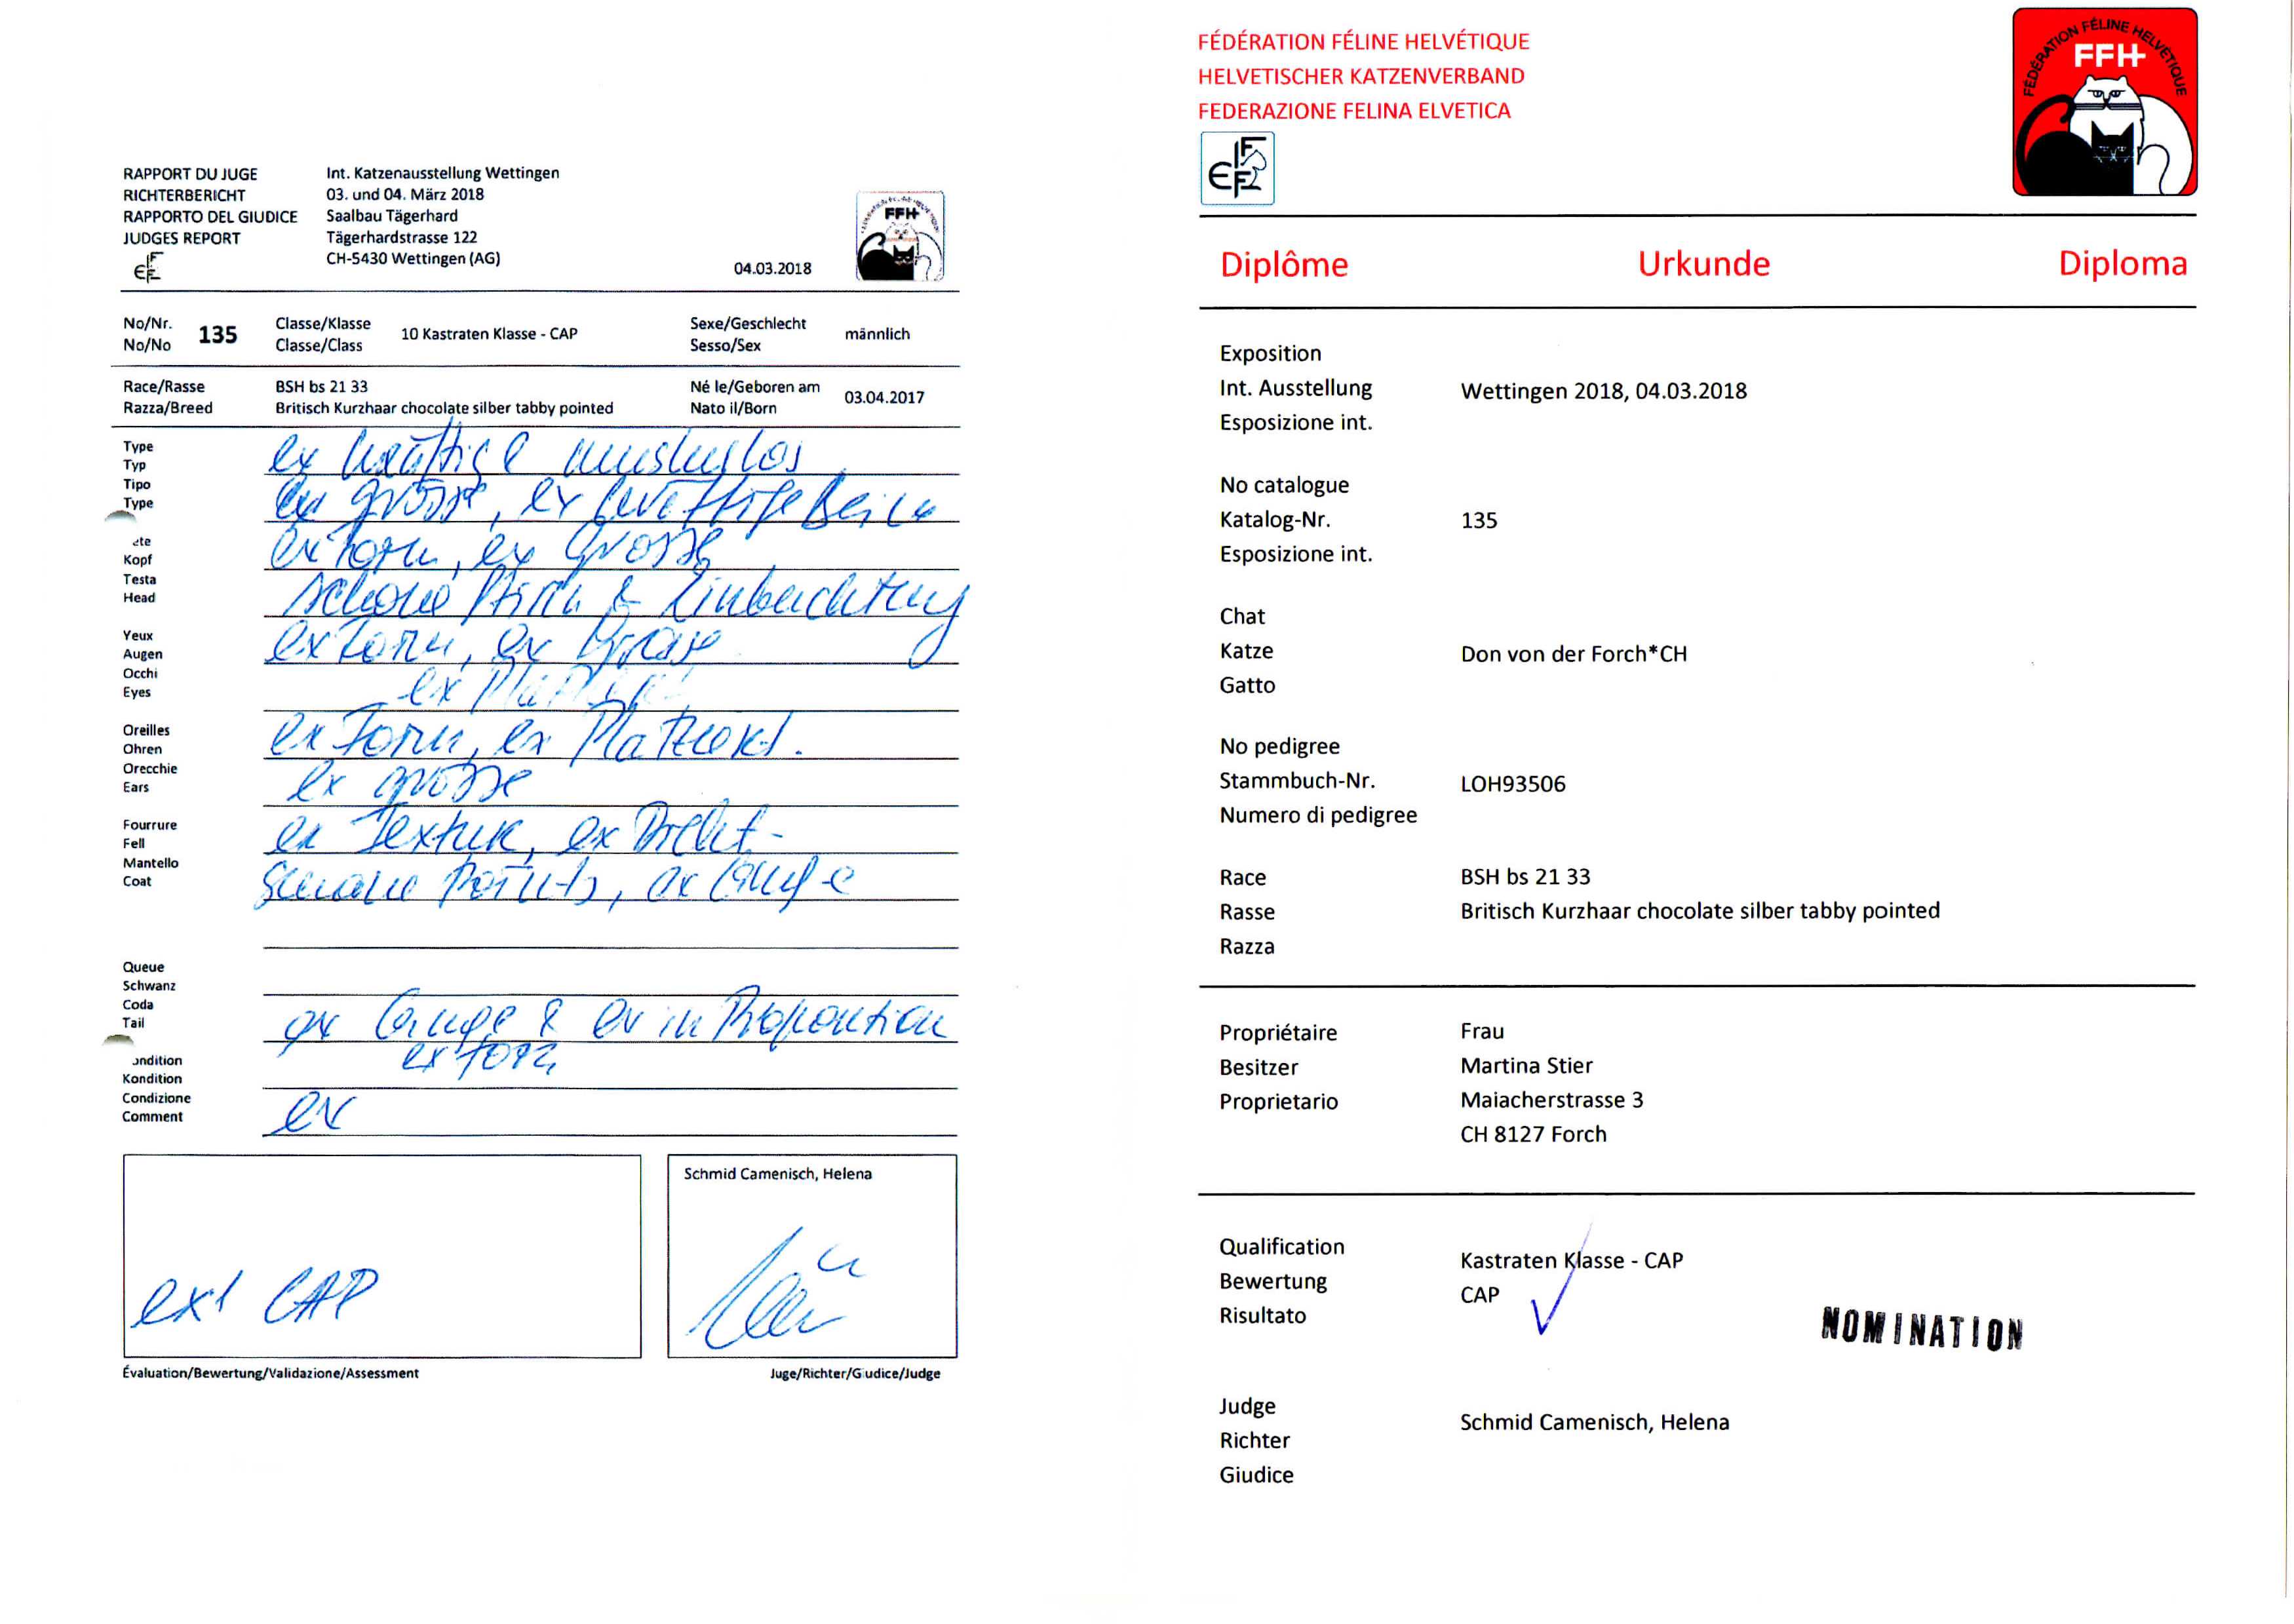 RAPPORT DU JUGE
RICHTERBERICHT
RAPPORTO DEL GIUDICE
JUDGES REPORT
FIFE
Int. Katzenausstellung Wettingen
03. und 04. März 2018
Saalbau Tägerhard
Tägerhardstrasse 122
CH-5430 Wettingen (AG)
04.03.2018
FFH
No/Nr.
No/No
135
Classe/Klasse
Classe/Class
10 Kastraten Klasse - CAP
Sexe/Geschlecht
Sesso/Sex
männlich
Race/Rasse
Razza/Breed
BSH bs 21 33
Britisch Kurzhaar chocolate silber tabby pointed
Né le/Geboren am
Nato il/Born
03.04.2017
Type
Typ
Tipo
Type
ex kräftig & muskulös
ex grösse, ex kräftige Beine
ête
Kopf
Testa
Head
ex Form, ex Grösse
schöne & Einbuchtung
Yeux
Augen
Occhi
Eyes
ex Form, ex
ex
Oreilles
Ohren
Orecchie
Ears
ex Form, ex Platziert.
ex grösse
Fourrure
Fell
Mantello
Coat
ex Textur, ex
Points, ex
Queue
Schwanz
Coda
Tail
ex Länge & ex in Proportion
ex Form
ondition
Kondition
Condizione
Comment
ex
ex1 CAP
Schmid Camenisch, Helena
Évaluation/Bewertung/Validazione/Assessment
Juge/Richter/Giudice/Judge
FÉDÉRATION FÉLINE HELVÉTIQUE
HELVETISCHER KATZENVERBAND
FEDERAZIONE FELINA ELVETICA
FIFE
FÉDÉRATION FÉLINE HELVÉTIQUE
FFH
Diplôme Urkunde Diploma
Exposition
Int. Ausstellung
Esposizione int.
Wettingen 2018, 04.03.2018
No catalogue
Katalog-Nr.
Esposizione int.
135
Chat
Katze
Gatto
Don von der Forch*CH
No pedigree
Stammbuch-Nr.
Numero di pedigree
LOH93506
Race
Rasse
Razza
BSH bs 21 33
Britisch Kurzhaar chocolate silber tabby pointed
Propriétaire
Besitzer
Proprietario
Frau
Martina Stier
Maiacherstrasse 3
CH 8127 Forch
Qualification
Bewertung
Risultato
Kastraten Klasse - CAP
CAP
NOMINATION
Judge
Richter
Giudice
Schmid Camenisch, Helena